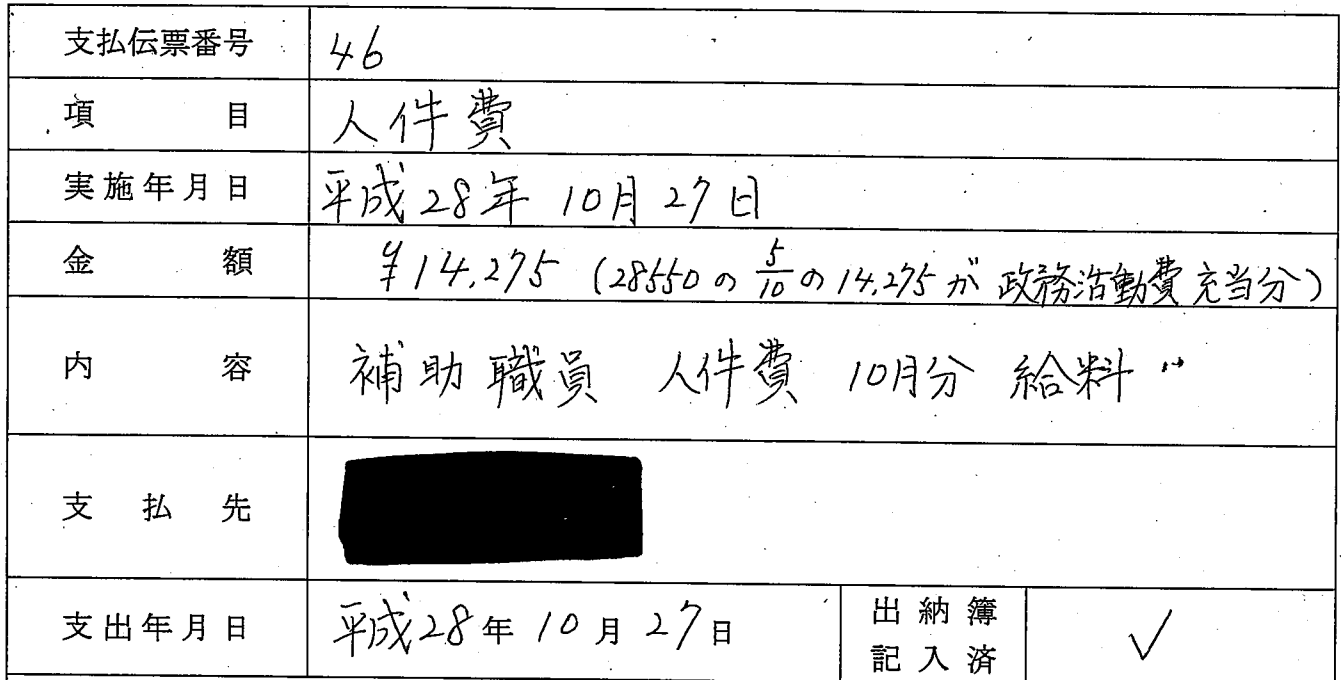 支払伝票番号 46
項目 人件費
実施年月日 平成28年10月27日
金額 ¥14,275 (28550の5/10の14,275が政務活動費充当分)
内容 補助職員 人件費 10月分 給料
支払先
支出年月日 平成28年10月27日 出納簿記入済 ✓